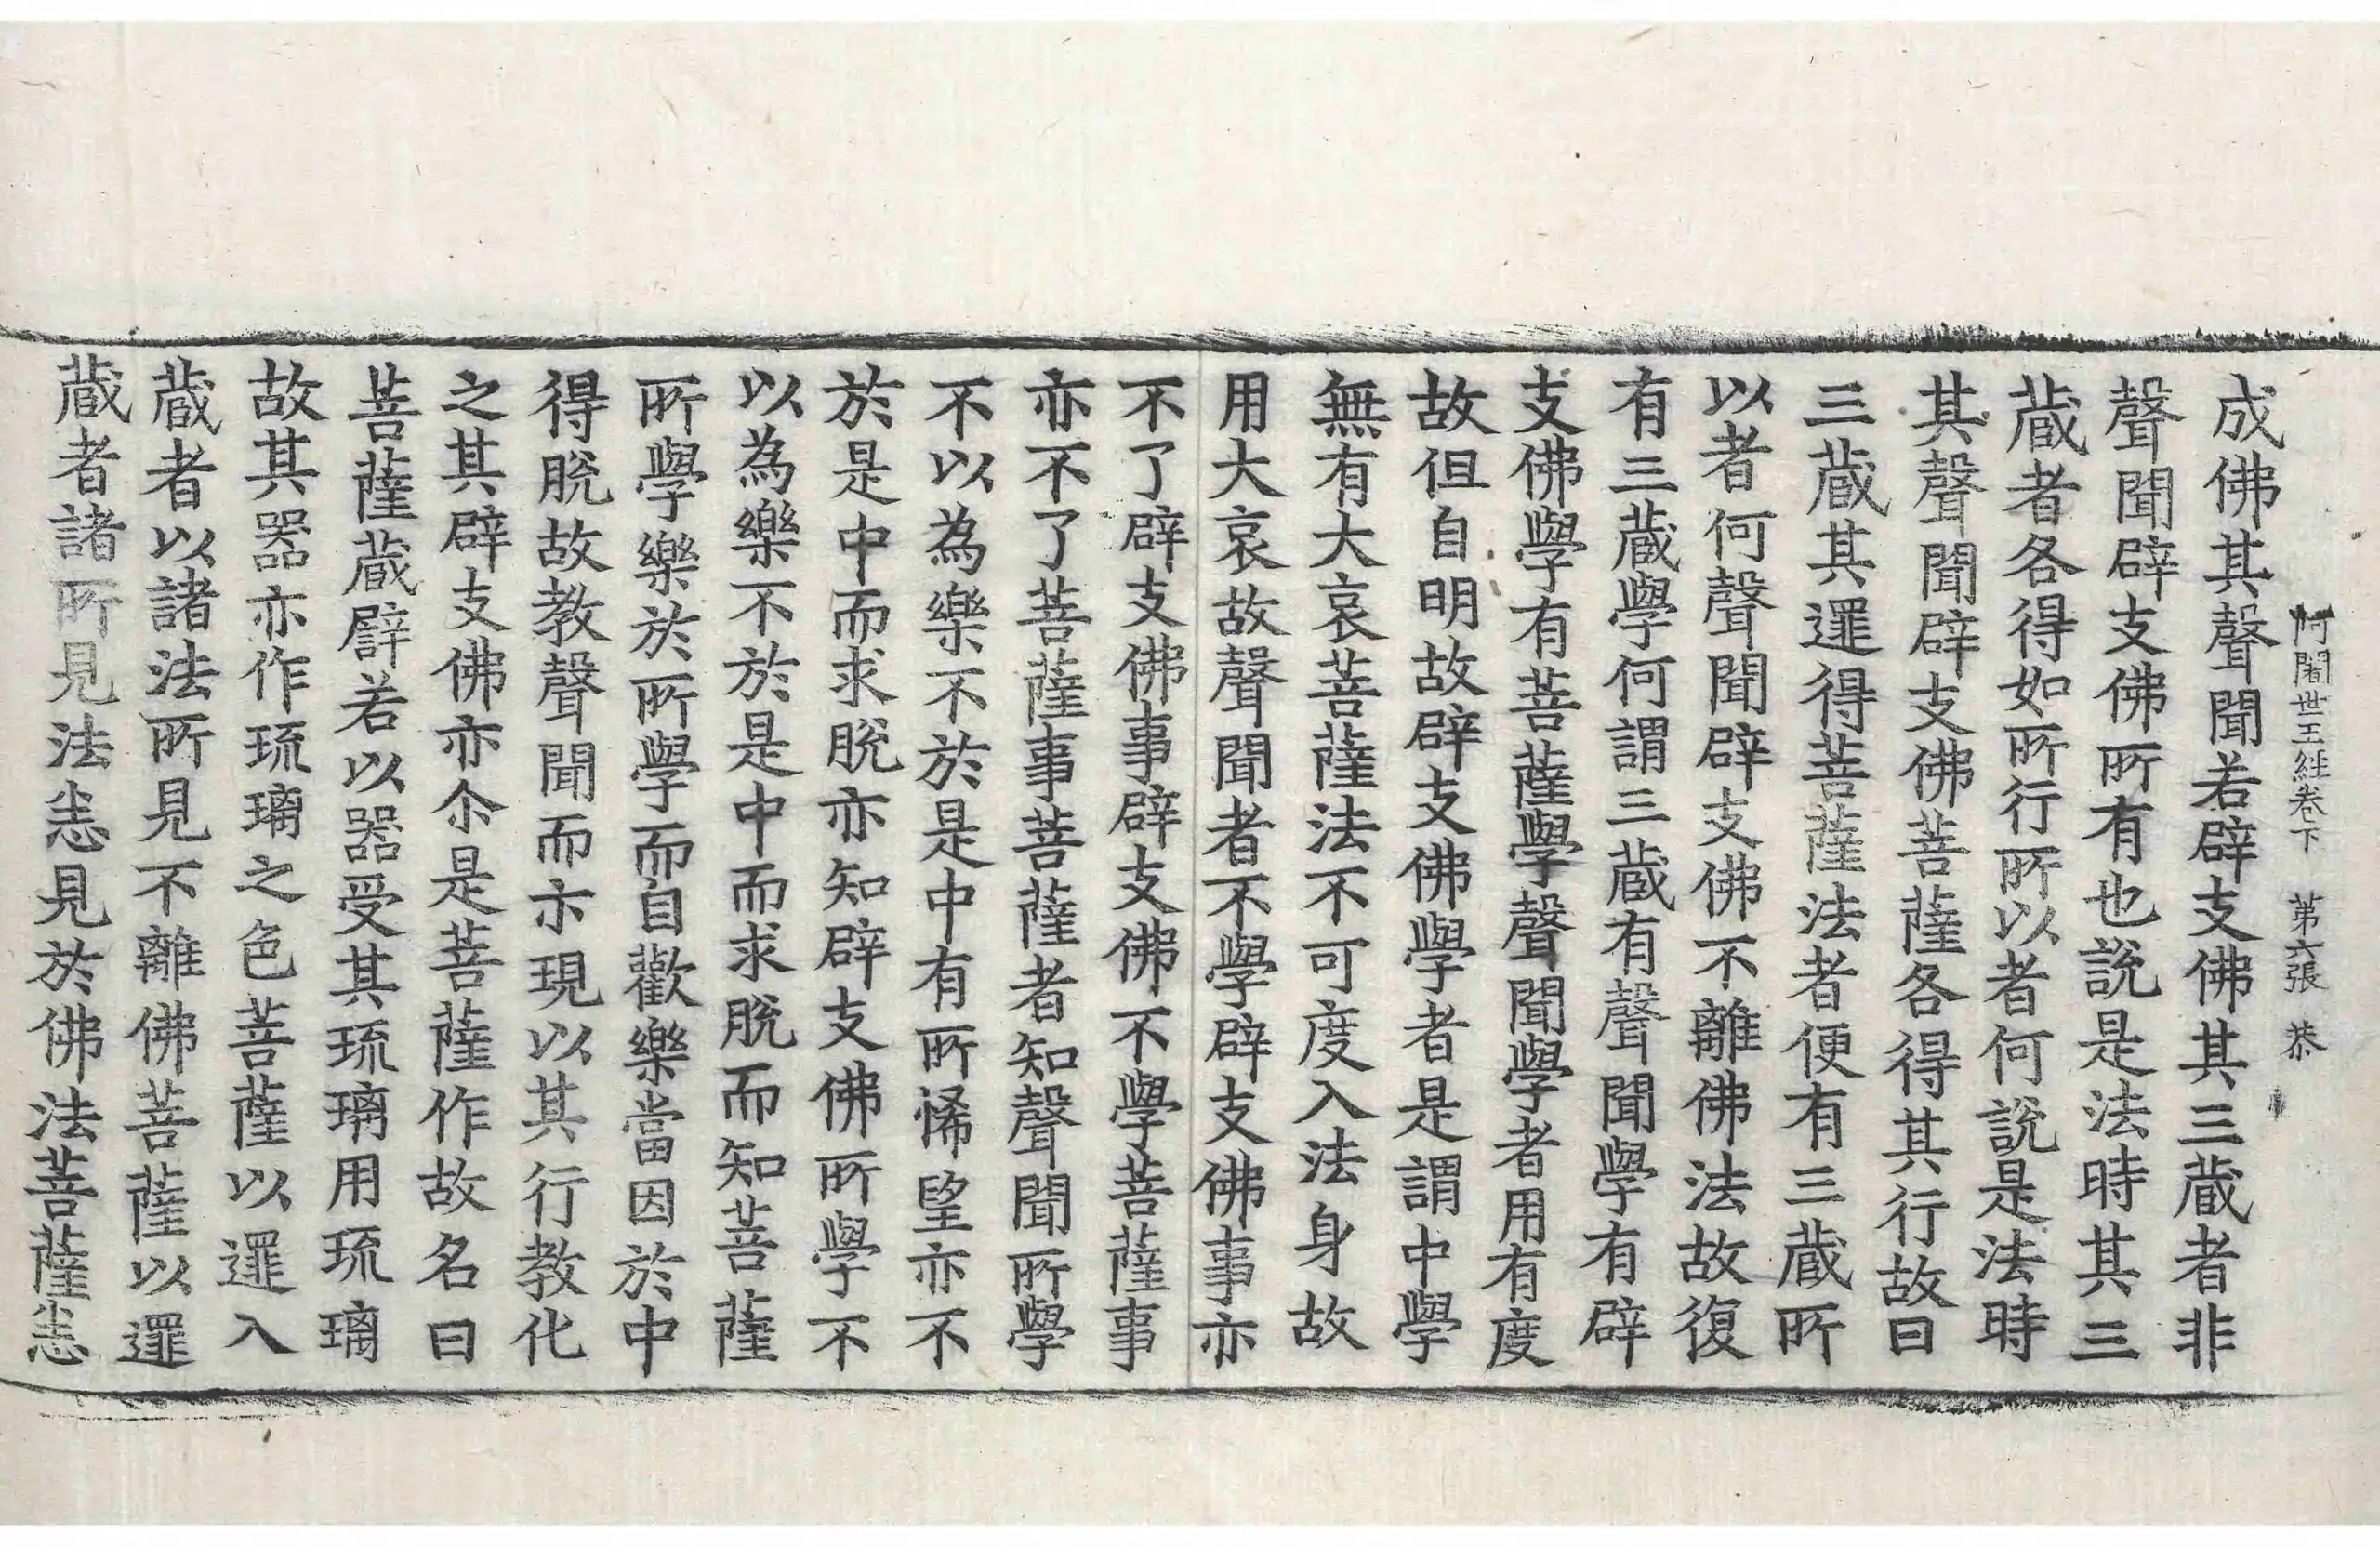 阿闍世王経卷下 第六張 恭
成佛其聲聞若辟支佛其三蔵者非
聲聞辟支佛所有也說是法時其三
蔵者各得如所行所以者何說是法時
其聲聞辟支佛菩薩各得其行故曰
三蔵其邏得菩薩法者便有三蔵所
以者何聲聞辟支佛不離佛法故復
有三蔵學何謂三蔵有聲聞學有辟
支佛學有菩薩學聲聞學者用有度
故但自明故辟支佛學者是謂中學
無有大哀菩薩法不可度入法身故
用大哀故聲聞者不學辟支佛事亦
不了辟支佛事辟支佛不學菩薩事
亦不了菩薩事菩薩者知聲聞所學
不以為樂不於是中有所悕望亦不
於是中而求脫亦知辟支佛所學不
以為樂不於是中而求脫而知菩薩
所學樂於所學而自歡樂當因於中
得脫故教聲聞而示現以其行教化
之其辟支佛亦尒是菩薩作故名曰
菩薩蔵譬若以器受其琉璃用琉璃
故其器亦作琉璃之色菩薩以邏入
蔵者以諸法所見不離佛菩薩以邏
蔵者諸所見法恙見於佛法菩薩恙